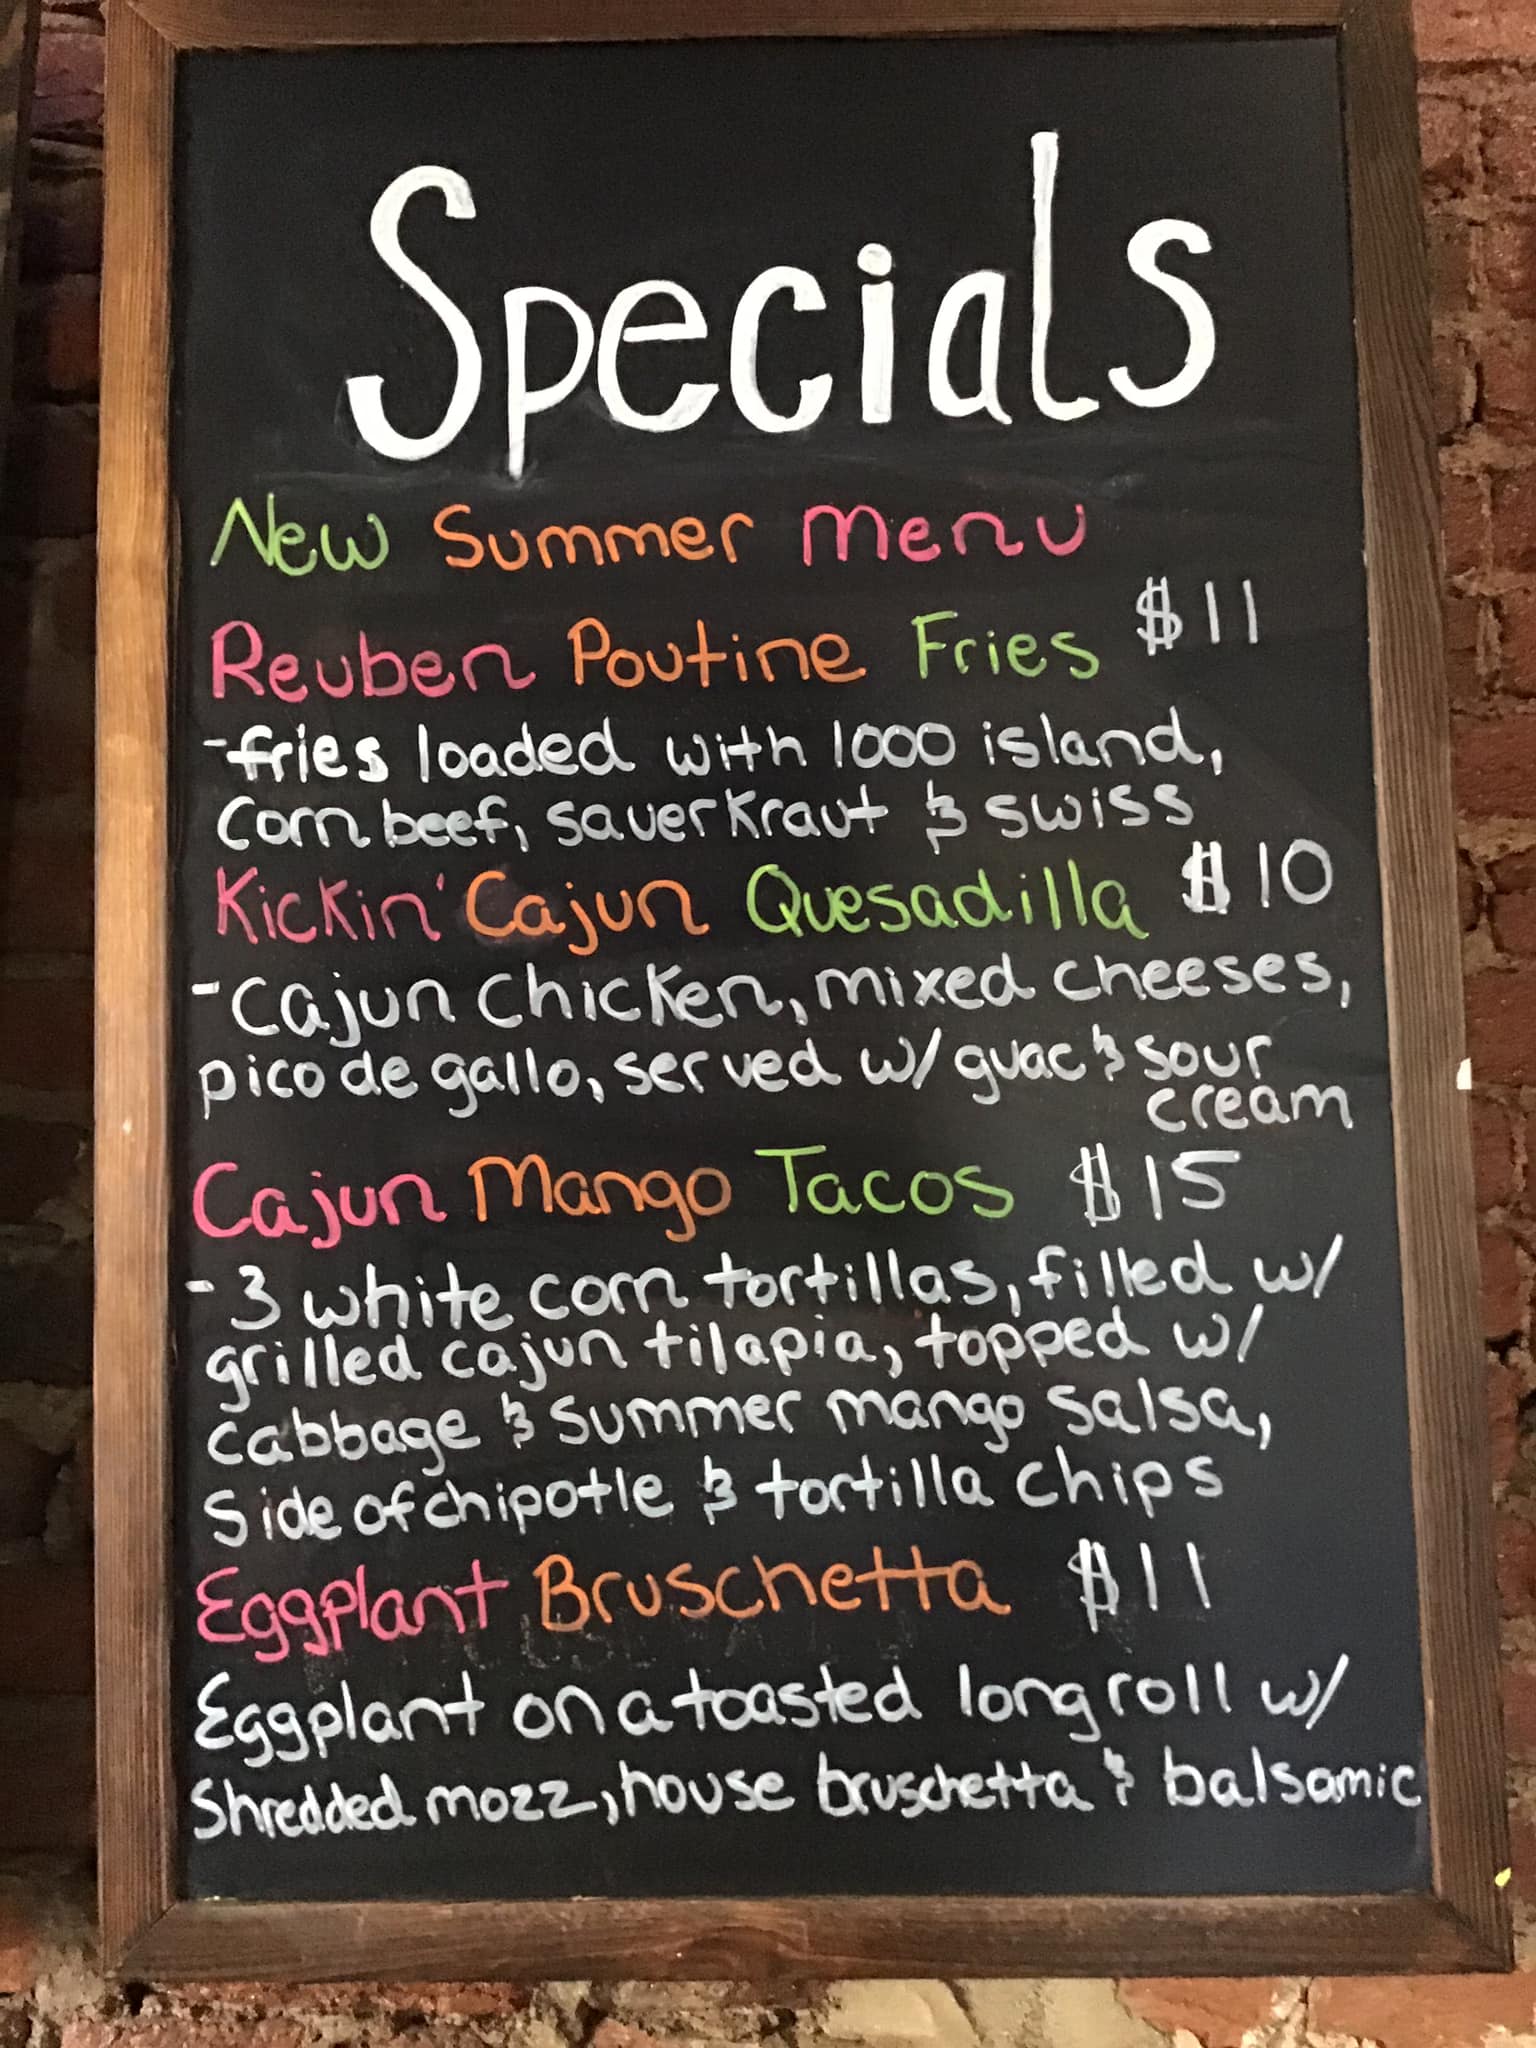 Specials
New Summer Menu
Reuben Poutine Fries $11
-fries loaded with 1000 island,
Corn beef, sauerkraut & swiss
Kickin' Cajun Quesadilla $10
-Cajun Chicken, mixed cheeses,
pico de gallo, served w/ guac & sour
cream
Cajun Mango Tacos $15
-3 white corn tortillas, filled w/
grilled cajun tilapia, topped w/
Cabbage & Summer mango Salsa,
Side of chipotle & tortilla chips
Eggplant Bruschetta $11
Eggplant on a toasted long roll w/
Shredded mozz, house bruschetta & balsamic